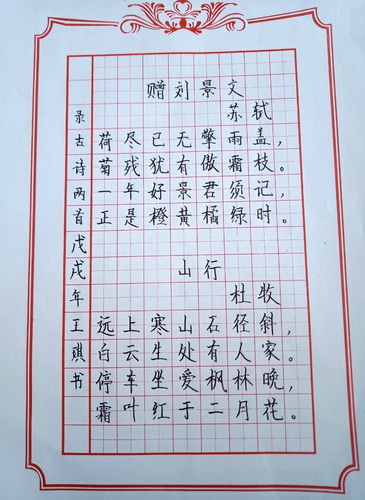 赠刘景文
苏轼
荷尽已无擎雨盖，
菊残犹有傲霜枝。
一年好景君须记，
正是橙黄橘绿时。
山行
杜牧
远上寒山石径斜，
白云生处有人家。
停车坐爱枫林晚，
霜叶红于二月花。
录古诗两首戊戌年王琪书